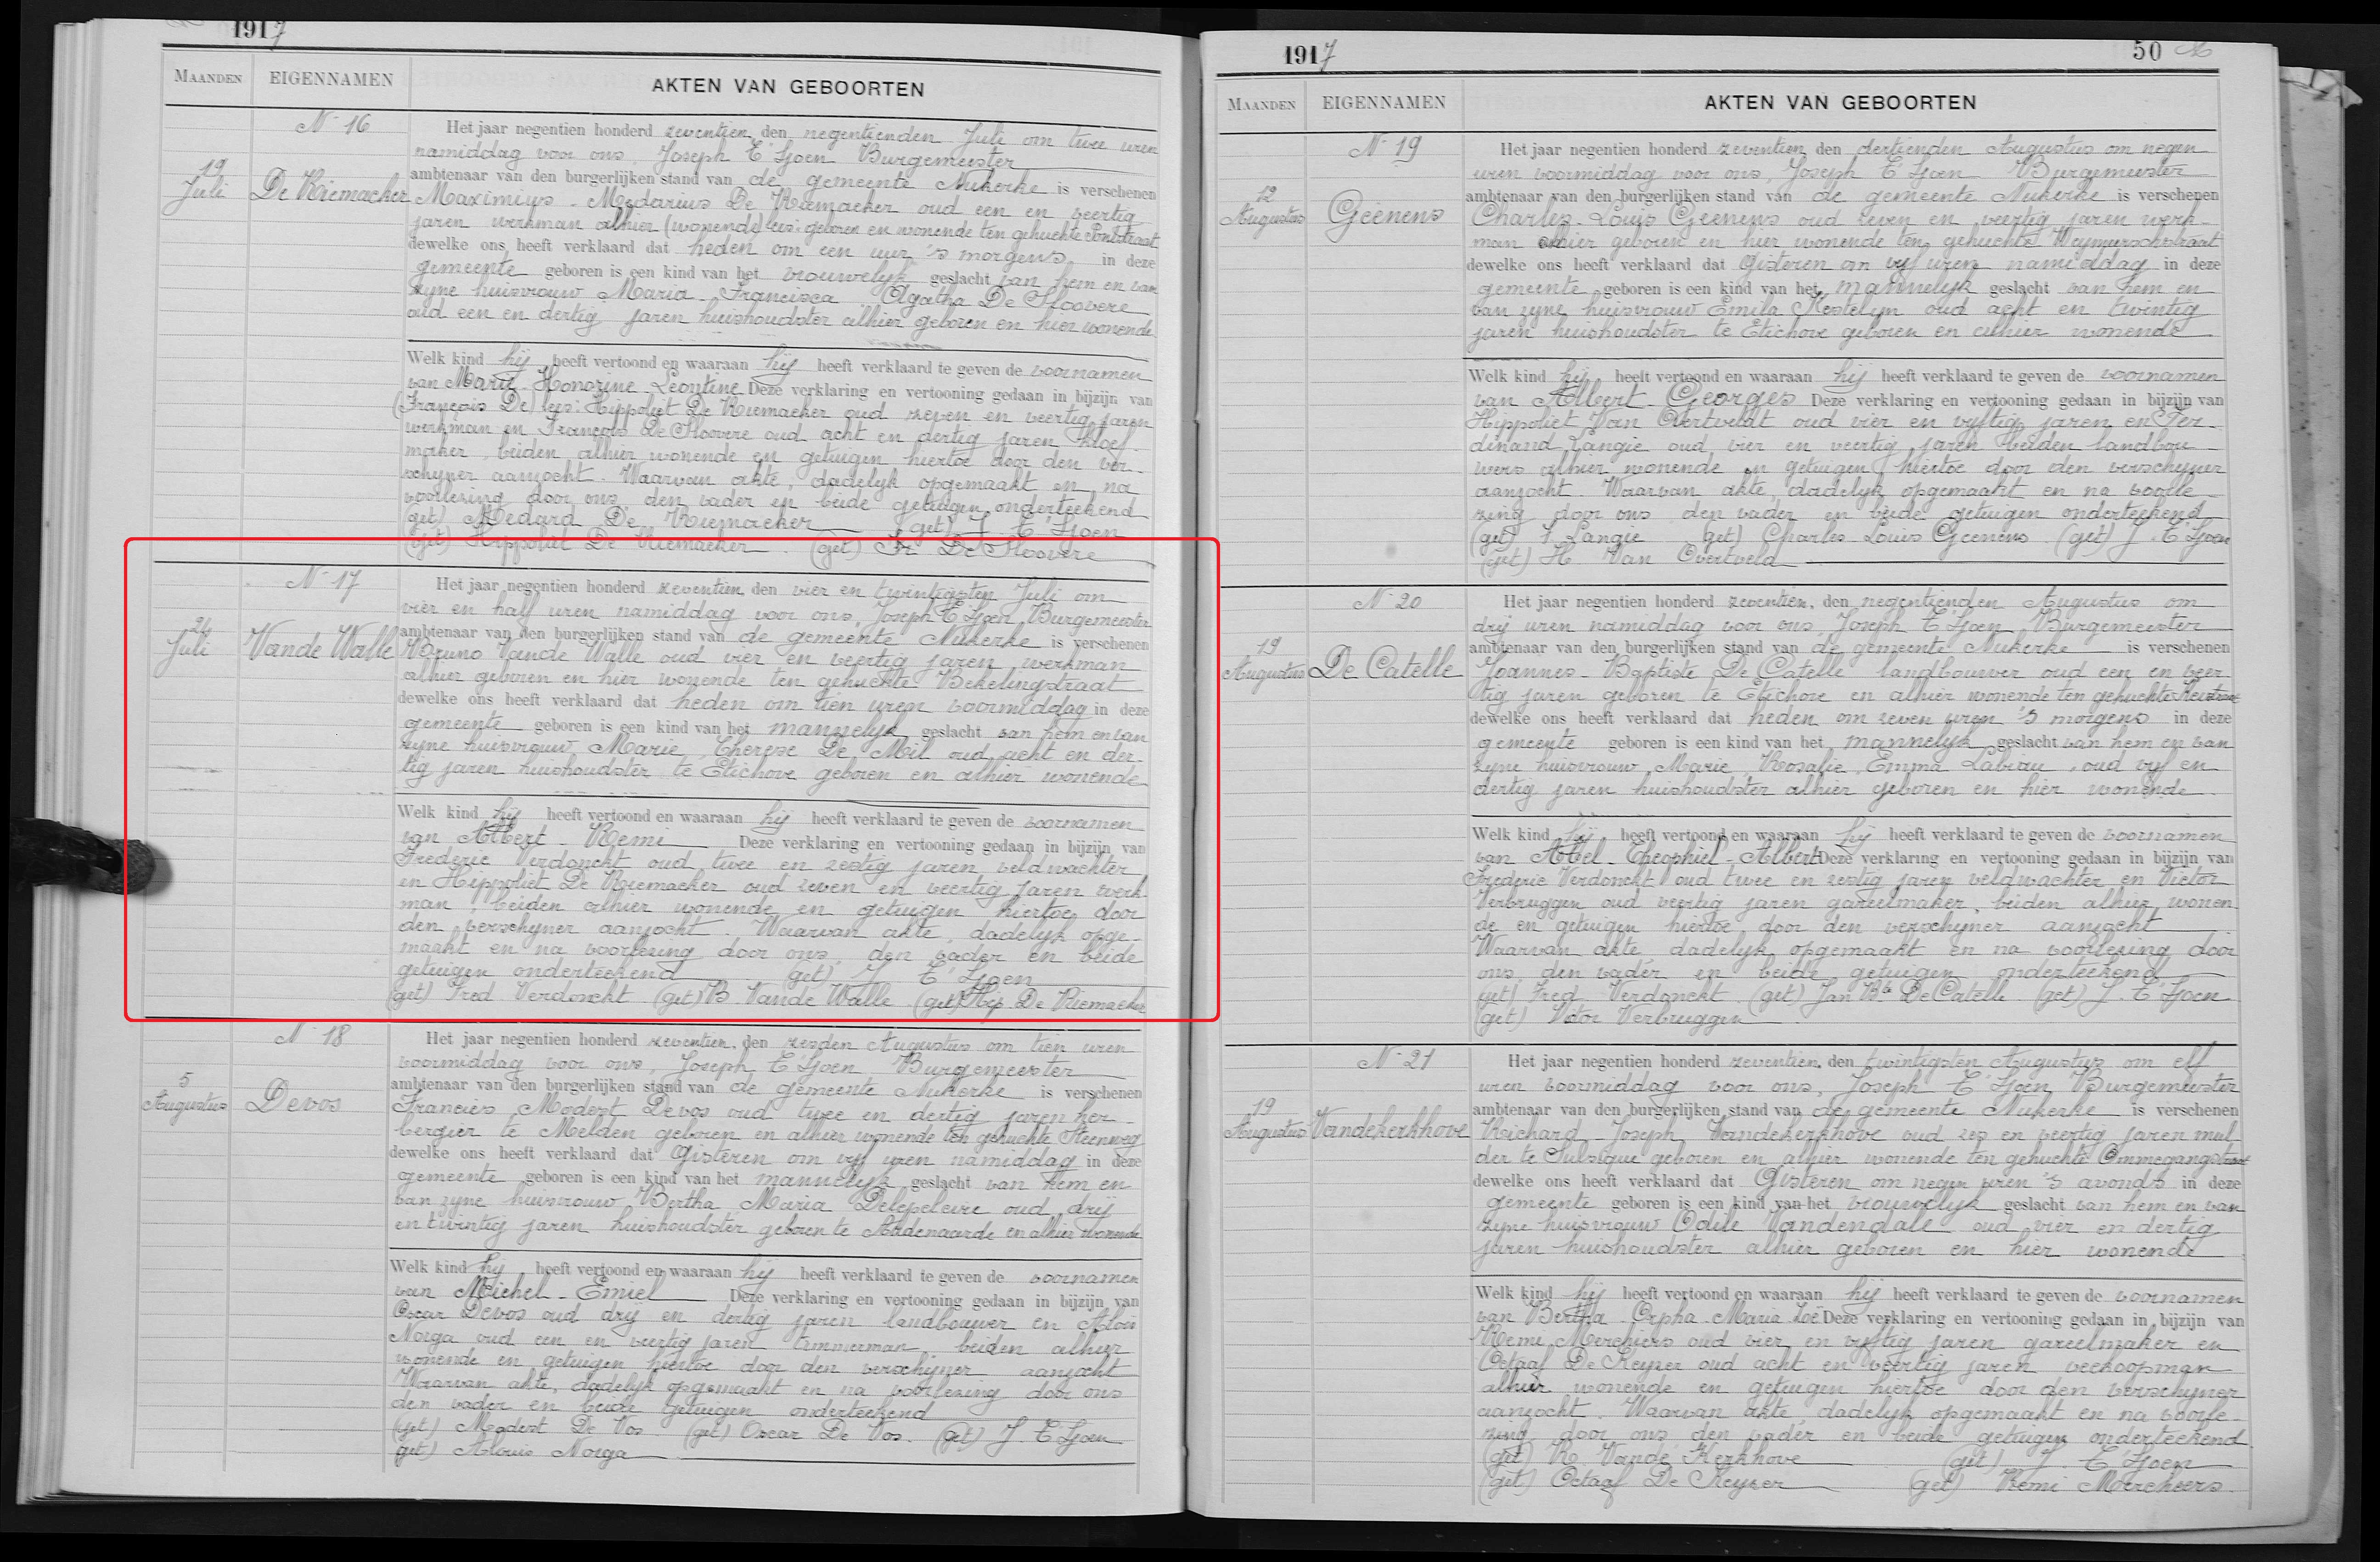 1917
MAANDEN EIGENNAMEN AKTEN VAN GEBOORTEN
N° 16
19 Juli
De Riemacker
Het jaar negentien honderd zeventien, den negentienden Juli om twee uren
namiddag voor ons, Joseph T'Sjoen Burgemeester
ambtenaar van den burgerlijken stand van de gemeente Nukerke is verschenen
Maximius - Medardus De Riemacker oud een en veertig
jaren werkman alhier (wonende) lees: geboren en wonende ten gehuchte Pontstraat
dewelke ons heeft verklaard dat heden om een uur 's morgens in deze
gemeente geboren is een kind van het vrouwelijk geslacht van hem en van
zijne huisvrouw Maria - Francisca - Agatha De Sloovere
oud een en dertig jaren huishoudster alhier geboren en hier wonende
Welk kind hij heeft vertoond en waaraan hij heeft verklaard te geven de voornamen
van Marie - Honorine - Leontine Deze verklaring en vertooning gedaan in bijzijn van
(François De) lees: Hippoliet De Riemacker oud zeven en veertig jaren
werkman en François De Sloovere oud acht en dertig jaren kloef-
maker, beiden alhier wonende en getuigen hiertoe door den ver-
schijner aanzocht. Waarvan akte, dadelijk opgemaakt en na
voorlezing door ons, den vader en beide getuigen onderteekend
(get) Medard De Riemacker (get) J. T'Sjoen
(get) Hippoliet De Riemacker (get) Fr De Sloovere
N° 17
24 Juli
Vande Walle
Het jaar negentien honderd zeventien, den vier en twintigsten Juli om
vier en half uren namiddag voor ons, Joseph T'Sjoen Burgemeester
ambtenaar van den burgerlijken stand van de gemeente Nukerke is verschenen
Bruno Vande Walle oud vier en veertig jaren werkman
alhier geboren en hier wonende ten gehuchte Bekelingstraat
dewelke ons heeft verklaard dat heden om tien uren voormiddag in deze
gemeente geboren is een kind van het mannelijk geslacht van hem en van
zijne huisvrouw Marie Therese De Mil oud acht en der-
tig jaren huishoudster te Etichove geboren en alhier wonende
Welk kind hij heeft vertoond en waaraan hij heeft verklaard te geven de voornamen
van Albert - Remi Deze verklaring en vertooning gedaan in bijzijn van
Frederic Verdonckt oud twee en zestig jaren veldwachter
en Hippoliet De Riemacker oud zeven en veertig jaren werk-
man, beiden alhier wonende en getuigen hiertoe door
den verschijner aanzocht. Waarvan akte, dadelijk opge-
maakt en na voorlezing door ons, den vader en beide
getuigen onderteekend (get) J. T'Sjoen
(get) Fred. Verdonckt (get) B. Vande Walle (get) Hip. De Riemacker
N° 18
5 Augustus
Devos
Het jaar negentien honderd zeventien, den zesden Augustus om tien uren
voormiddag voor ons, Joseph T'Sjoen Burgemeester
ambtenaar van den burgerlijken stand van de gemeente Nukerke is verschenen
Francies Modest Devos oud twee en dertig jaren her-
bergier te Melden geboren en alhier wonende ten gehuchte Steenweg
dewelke ons heeft verklaard dat Gisteren om vijf uren namiddag in deze
gemeente geboren is een kind van het mannelijk geslacht van hem en
van zijne huisvrouw Bertha Maria Delepeleire oud drij
en twintig jaren huishoudster geboren te Audenaarde en alhier wonende
Welk kind hij heeft vertoond en waaraan hij heeft verklaard te geven de voornamen
van Michel - Emiel Deze verklaring en vertooning gedaan in bijzijn van
Oscar Devos oud drij en dertig jaren landbouwer en Alois
Norga oud een en veertig jaren timmerman, beiden alhier
wonende en getuigen hiertoe door den verschijner aanzocht
Waarvan akte, dadelijk opgemaakt en na voorlezing door ons
den vader en beide getuigen onderteekend
(get) Modest De Vos (get) Oscar De Vos. (get) J. T'Sjoen
(get) Alouis Norga
1917 50
MAANDEN EIGENNAMEN AKTEN VAN GEBOORTEN
N° 19
12 Augustus
Geenens
Het jaar negentien honderd zeventien, den dertienden Augustus om negen
uren voormiddag voor ons, Joseph T'Sjoen Burgemeester
ambtenaar van den burgerlijken stand van de gemeente Nukerke is verschenen
Charles - Louis Geenens oud zeven en veertig jaren werk-
man alhier geboren en hier wonende ten gehuchte
dewelke ons heeft verklaard dat Gisteren om vijf uren namiddag in deze
gemeente geboren is een kind van het mannelijk geslacht van hem en
van zijne huisvrouw Emila Kestelyn oud acht en twintig
jaren huishoudster te Etichove geboren en alhier wonende
Welk kind hij heeft vertoond en waaraan hij heeft verklaard te geven de voornamen
van Albert - Georges Deze verklaring en vertooning gedaan in bijzijn van
Hippoliet Van Overtveldt oud vier en vijftig jaren en Fer-
dinand Langie oud vier en veertig jaren beiden landbou-
wers alhier wonende en getuigen hiertoe door den verschijner
aanzocht. Waarvan akte, dadelijk opgemaakt en na voorle-
zing door ons den vader en beide getuigen onderteekend
(get) F. Langie (get) Charles - Louis Geenens (get) J. T'Sjoen
(get) H. Van Overtveld
N° 20
19 Augustus
De Catelle
Het jaar negentien honderd zeventien, den negentienden Augustus om
drij uren namiddag voor ons, Joseph T'Sjoen Burgemeester
ambtenaar van den burgerlijken stand van de gemeente Nukerke is verschenen
Joannes - Baptiste De Catelle landbouwer oud een en veer-
tig jaren geboren te Etichove en alhier wonende ten gehuchte Keistraat
dewelke ons heeft verklaard dat heden om zeven uren 's morgens in deze
gemeente geboren is een kind van het mannelijk geslacht van hem en van
zijne huisvrouw Marie Rosalie Emma Labeau, oud vijf en
dertig jaren huishoudster alhier geboren en hier wonende
Welk kind hij heeft vertoond en waaraan hij heeft verklaard te geven de voornamen
van Abel - Theophiel - Albert Deze verklaring en vertooning gedaan in bijzijn van
Frederic Verdonckt oud twee en zestig jaren veldwachter en Victor
Verbruggen oud veertig jaren gareelmaker, beiden alhier wonen-
de en getuigen hiertoe door den verschijner aanzocht
Waarvan akte, dadelijk opgemaakt en na voorlezing door
ons, den vader en beide getuigen onderteekend
(get) Fred. Verdonckt. (get) Jan Bte De Catelle (get) J. T'Sjoen
(get) Victor Verbruggen
N° 21
19 Augustus
Vandekerkhove
Het jaar negentien honderd zeventien, den twintigsten Augustus om elf
uren voormiddag voor ons, Joseph T'Sjoen Burgemeester
ambtenaar van den burgerlijken stand van de gemeente Nukerke is verschenen
Richard - Joseph Vandekerkhove oud zes en veertig jaren mul-
der te Sulsique geboren en alhier wonende ten gehuchte Ommegangstraat
dewelke ons heeft verklaard dat Gisteren om negen uren 's avonds in deze
gemeente geboren is een kind van het vrouwelijk geslacht van hem en van
zijne huisvrouw Odile Vandendale oud vier en dertig
jaren huishoudster alhier geboren en hier wonende
Welk kind hij heeft vertoond en waaraan hij heeft verklaard te geven de voornamen
van Bertha - Orpha - Maria Zoë Deze verklaring en vertooning gedaan in bijzijn van
Remi Merchiers oud vier en vijftig jaren gareelmaker en
Octaaf De Keyzer oud acht en veertig jaren veekoopman
alhier wonende en getuigen hiertoe door den verschijner
aanzocht. Waarvan akte, dadelijk opgemaakt en na voorle-
zing door ons den vader en beide getuigen onderteekend
(get) R. Vande Kerkhove (get) J. T'Sjoen
(get) Octaaf De Keyzer (get) Remi